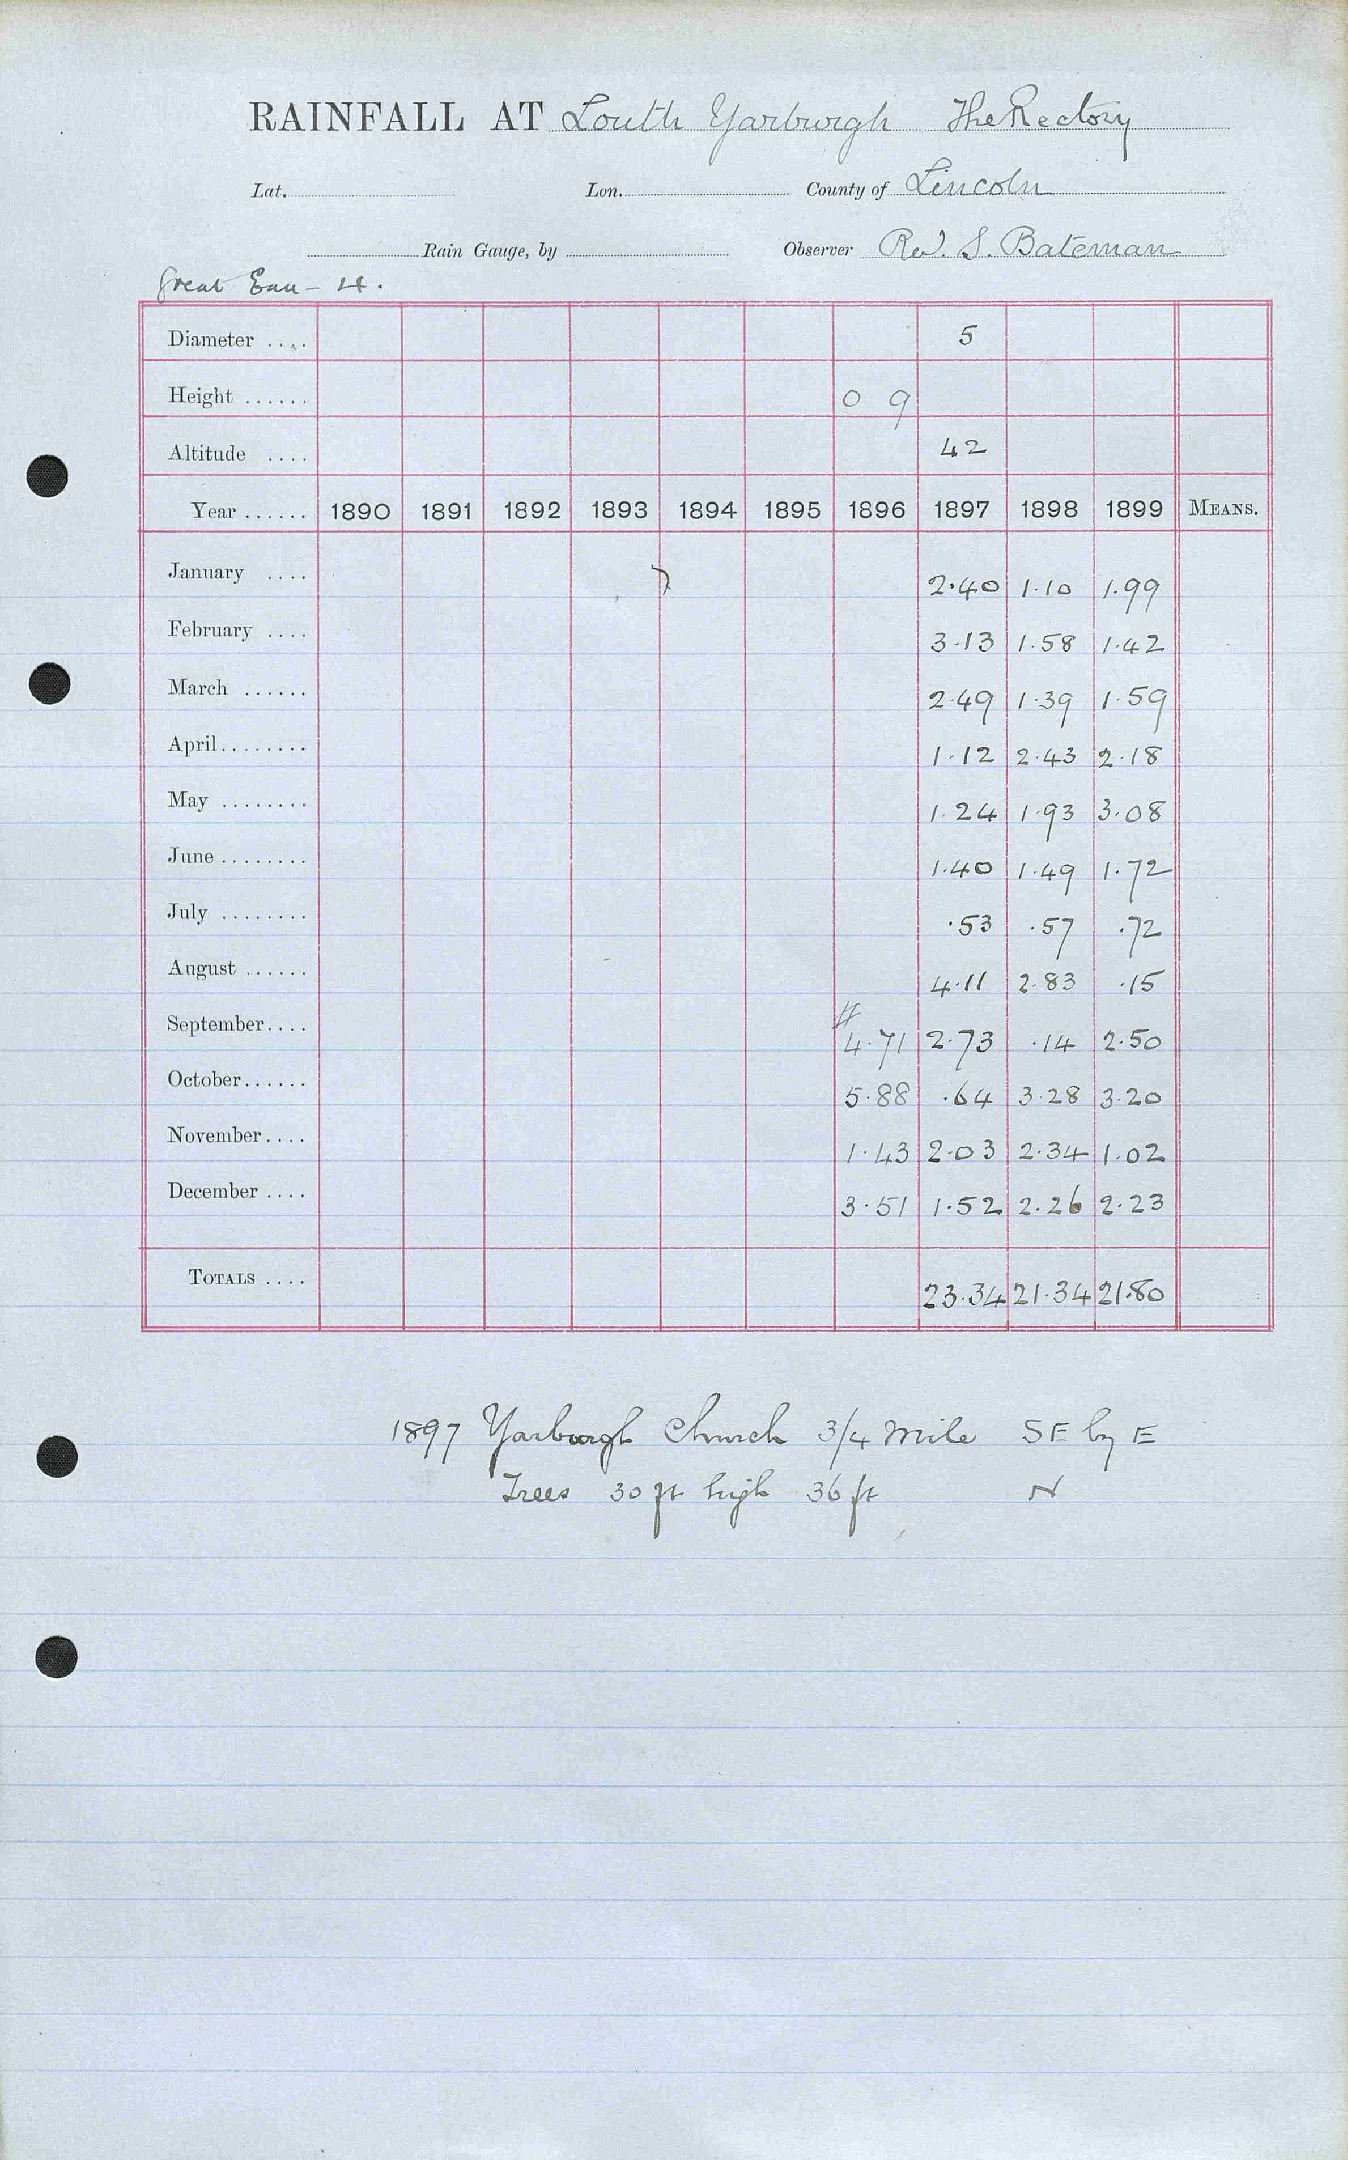 RAINFALL AT Louth Yarburgh The Rectory
Lat. Lon. County of Lincoln
Rain Gauge, by Observer Rev. S. Bateman
Great Eau - 4.
Diameter .... 5
Height ...... 0 9
Altitude .... 42
Year ...... 1890 1891 1892 1893 1894 1895 1896 1897 1898 1899 MEANS.
January .... 2.40 1.10 1.99
February .... 3.13 1.58 1.42
March ...... 2.49 1.39 1.59
April........ 1.12 2.43 2.18
May ........ 1.24 1.93 3.08
June ........ 1.40 1.49 1.72
July ........ .53 .57 .72
August ...... 4.11 2.83 .15
September.... # 4.71 2.73 .14 2.50
October...... 5.88 .64 3.28 3.20
November.... 1.43 2.03 2.34 1.02
December .... 3.51 1.52 2.26 2.23
TOTALS .... 23.34 21.34 21.80
1897 Yarburgh Church 3/4 mile SE by E
Trees 30 ft high 36 ft N